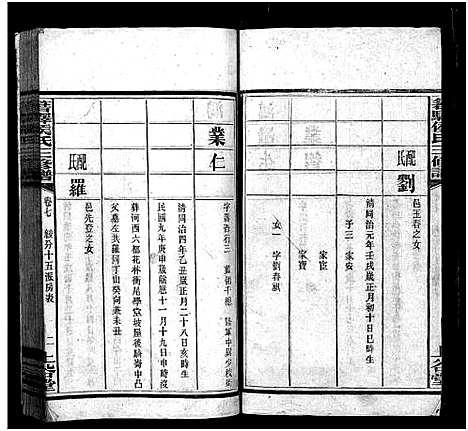 劉
氏配
邑玉春之女
清同治元年壬戌歲正月初十日巳時生
子三 家安
家宦
家寶
女一 字劉春祺
業仁
清同治四年乙丑歲正月二十八日亥時生
民國九年庚申歲陰曆十一月十九日申時沒
葬河西六都花林衝尾學堂坡屋後騎崙中凸
父墓左共羅同丁山癸向兼未丑
氏配
羅
邑先登之女
侯氏三修譜
卷七
十五派房表